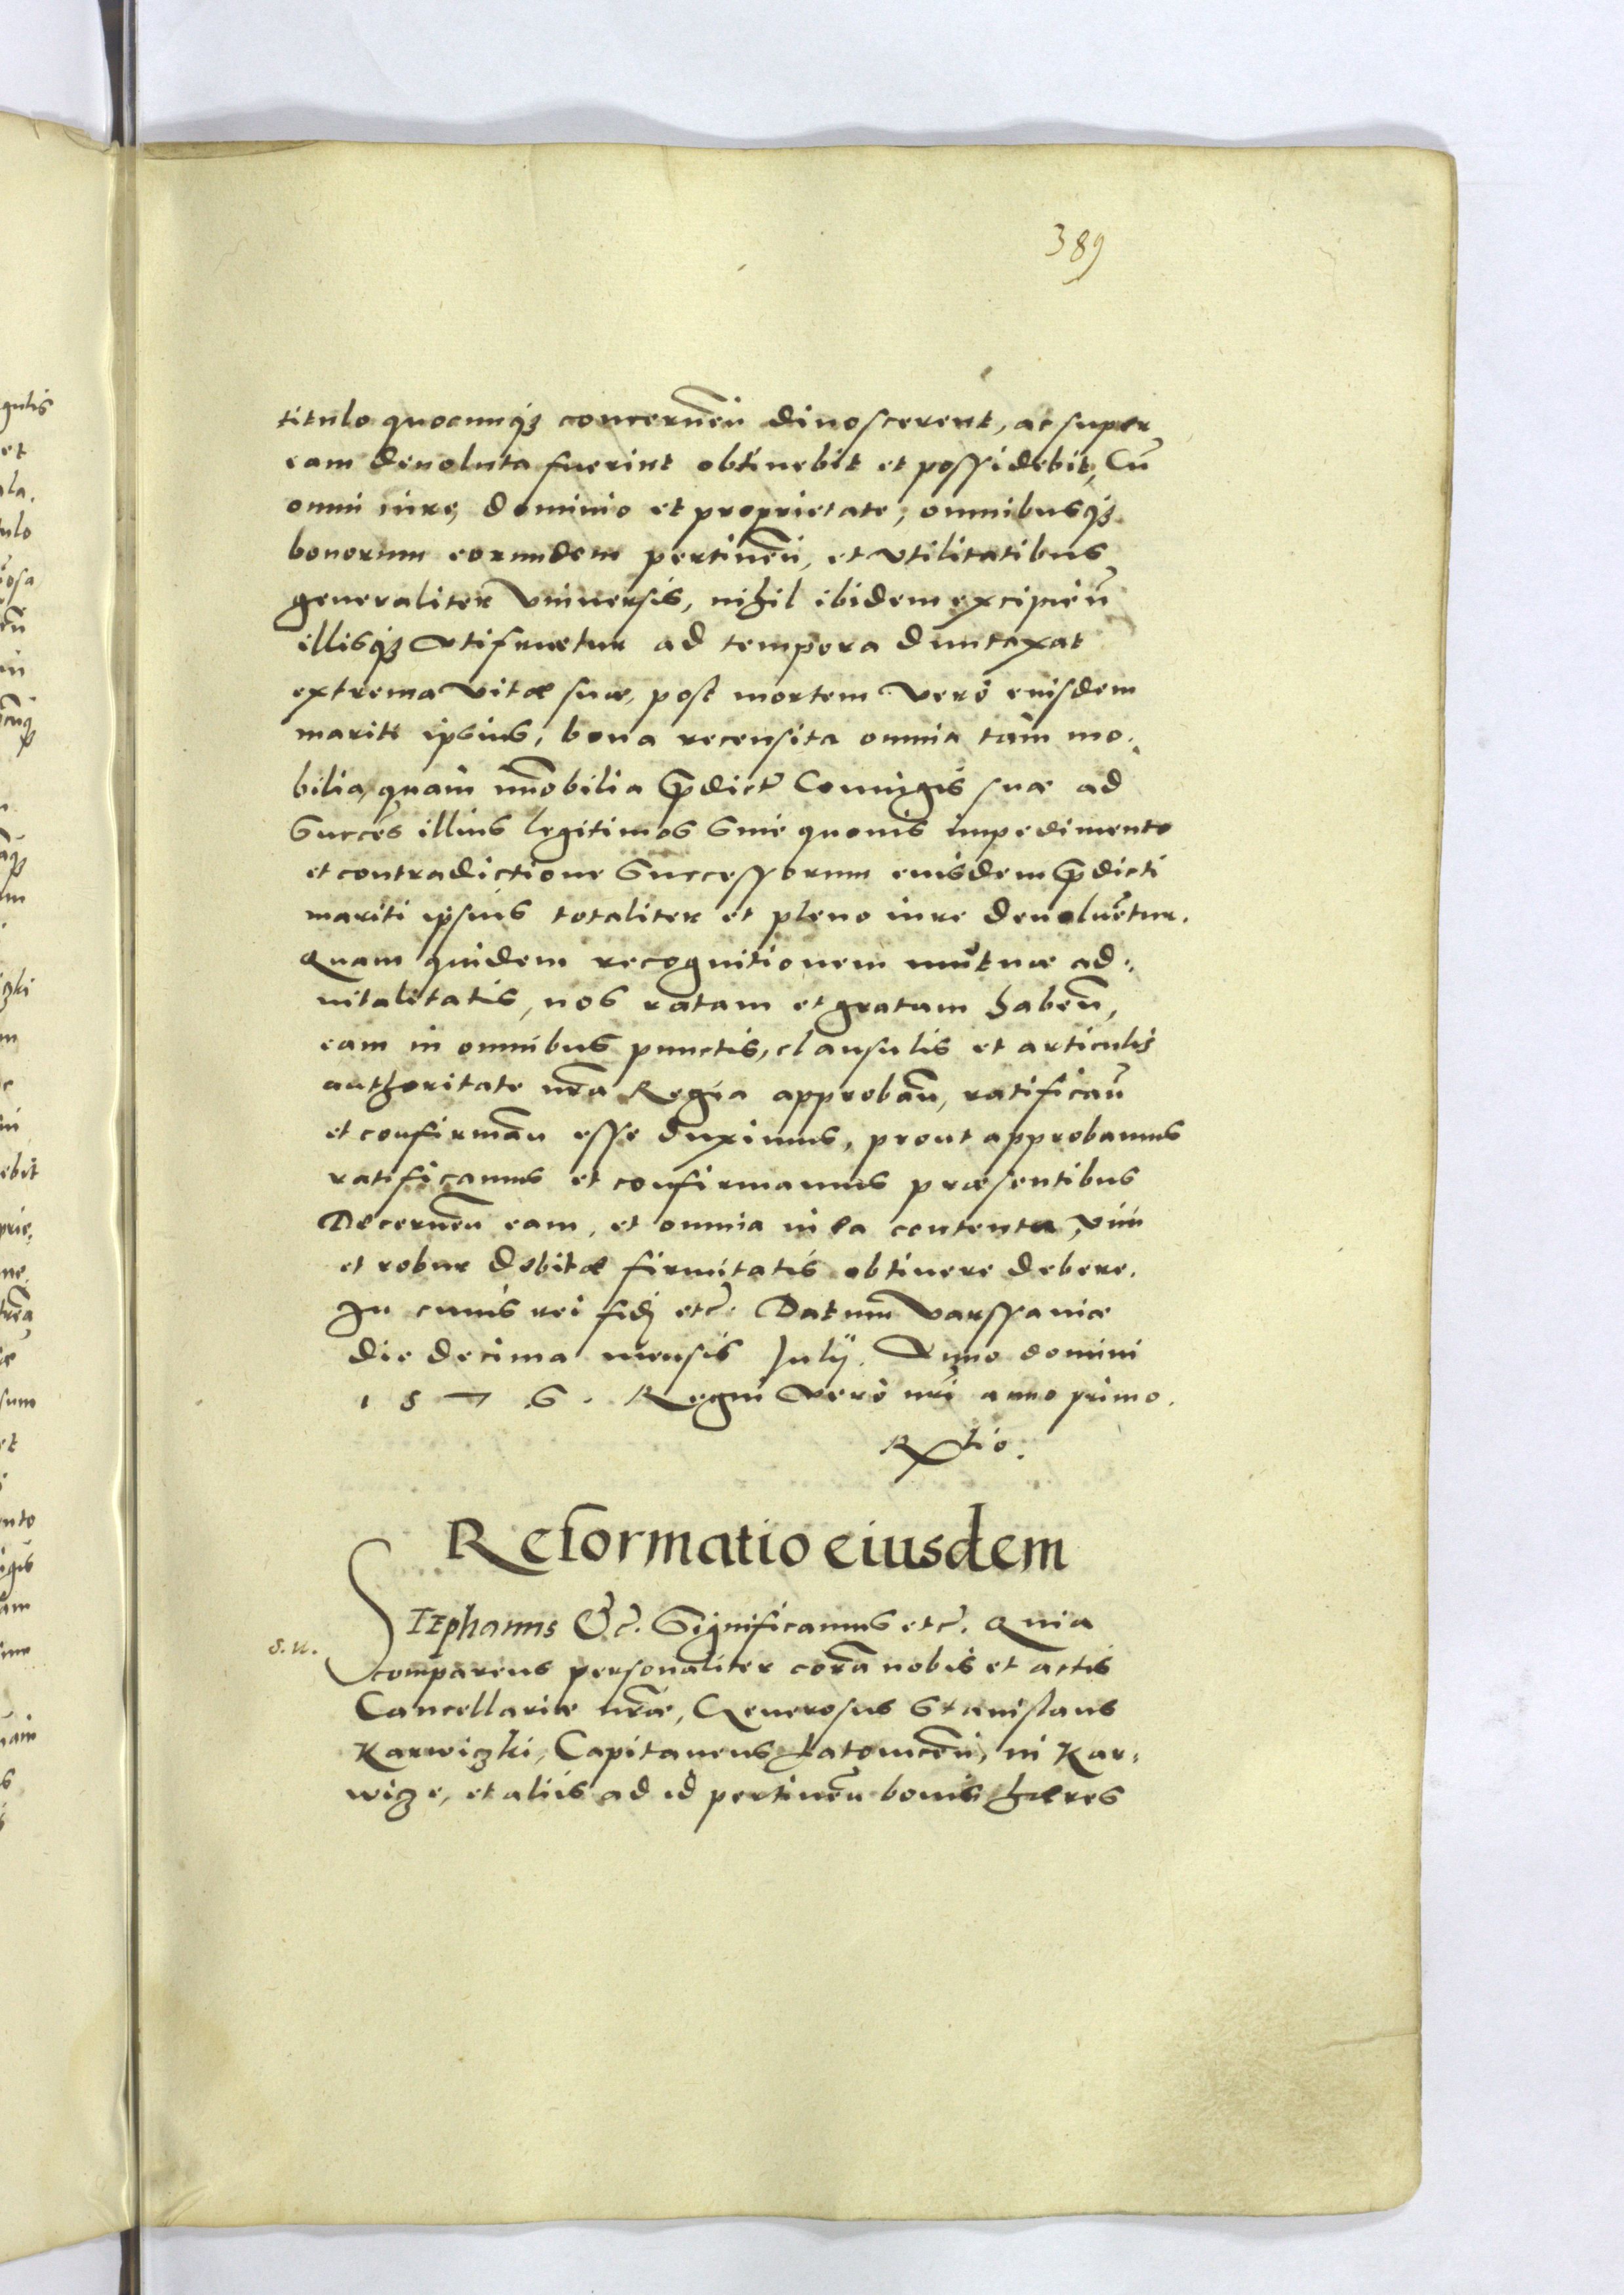 389
titulo quocunqȝ concernen̄ dinoscerent, ac super
eam deuoluta fuerint obtinebit et possidebit, Cū
omni iure, dominio et proprietate, omnibusqȝ
bonorum eorundem pertinen̄, et vtilitatibus
generaliter vniuersis, nihil ibidem excipien̄
illisqȝ vtifruetur ad tempora duntaxat
extrema vitæ suæ, post mortem verò eiusdem
mariti ipsius, bona recensita omnia tàm mo„
bilia, quàm im̄obilia p̄dictæ Coniugis suæ ad
Succes illius legitimos Sine quouis impedimento
et contradictione Successorum eiusdem p̄dicti
mariti ipsius totaliter et pleno iure deuoluētur.
Quam quidem recognitionem mutuæ ad„
uitalitatis, nos ratam et gratam haben̄,
eam in omnibus punctis, clausulis et articulis
authoritate nr̄a Regia approban̄, ratifican̄
et confirman̄ esse duximus, prout approbamus
ratificamus et confirmamus præsentibus
Decernen̄ eam, et omnia in ea contenta, vim
et robur debitæ firmitatis obtinere debere.
In cuius rei fidȩ etc̄. Datum Varssauiæ
die decima mensis Julij. Anno domini
1576. Regni verò nr̄i anno primo.
Rxtio.
Reformatio eiusdem
STEphanus &c̄. Significamus etc̄. Quia
s. u.
comparens personaliter corā nobis et actis
Cancellariæ nr̄æ, Generosus Stanislaus
Karwiczki, Capitaneus, in Kar„
wicze, et aliis ad id pertinen̄ bonis hæres
gulis
et
ulo
ebit
sum
et
am